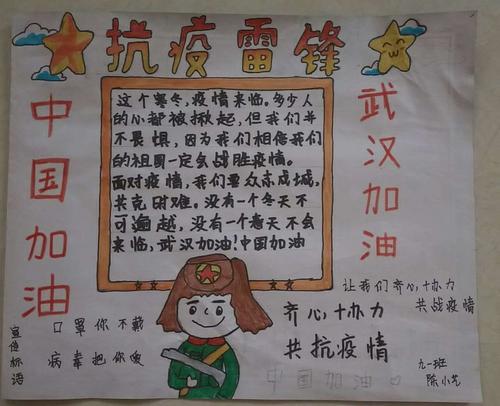 抗疫雷锋
中国加油
武汉加油
这个寒冬,疫情来临。多少人
的心都被揪起,但我们并
不畏惧,因为我们相信我们
的祖国一定会战胜疫情。
面对疫情,我们要众志成城,
共克时难。没有一个冬天不
可逾越,没有一个春天不会
来临,武汉加油!中国加油
让我们齐心协力
共战疫情
齐心协力
共抗疫情
宣传标语
口罩你不戴
病毒把你爱
九一班
陈小艺
中国加油